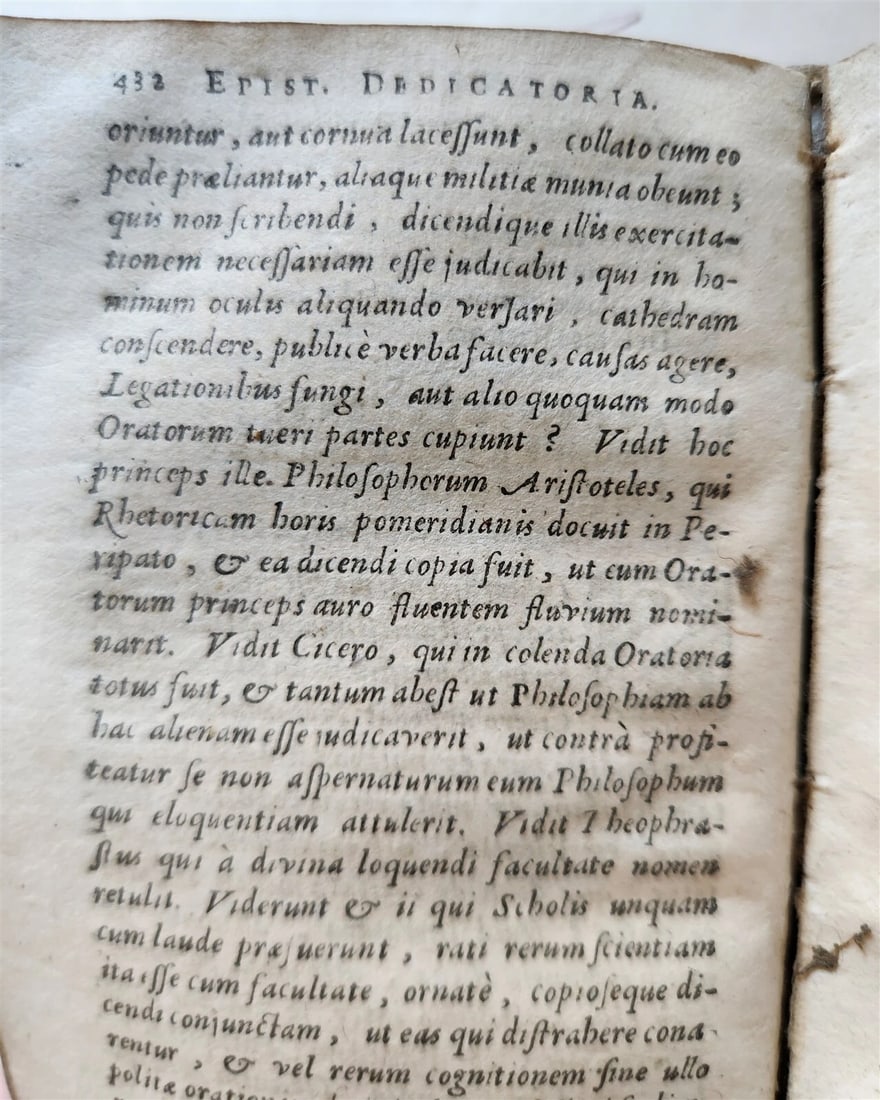 432 EPIST. DEDICATORIA.
oriuntur, aut cornua lacessunt, collato cum eo
pede præliantur, aliaque militiæ munia obeunt;
quis non scribendi, dicendique illis exercita-
tionem necessariam esse judicabit, qui in ho-
minum oculis aliquando versari, cathedram
conscendere, publicè verba facere, causas agere,
Legationibus fungi, aut alio quoquam modo
Oratorum tueri partes cupiunt? Vidit hoc
princeps ille. Philosophorum Aristoteles, qui
Rhetoricam horis pomeridianis docuit in Pe-
ripato, & ea dicendi copia fuit, ut eum Ora-
torum princeps auro fluentem fluvium nomi-
narit. Vidit Cicero, qui in colenda Oratoria
totus fuit, & tantum abest ut Philosophiam ab
hac alienam esse judicaverit, ut contrà profi-
teatur se non aspernaturum eum Philosophum
qui eloquentiam attulerit. Vidit Theophra-
stus qui à divina loquendi facultate nomen
retulit. Viderunt & ii qui Scholis unquam
cum laude præfuerunt, rati rerum scientiam
ita esse cum facultate, ornatè, copioseque di-
cendi conjunctam, ut eas qui distrahere cona-
rentur, & vel rerum cognitionem sine ullo
politæ